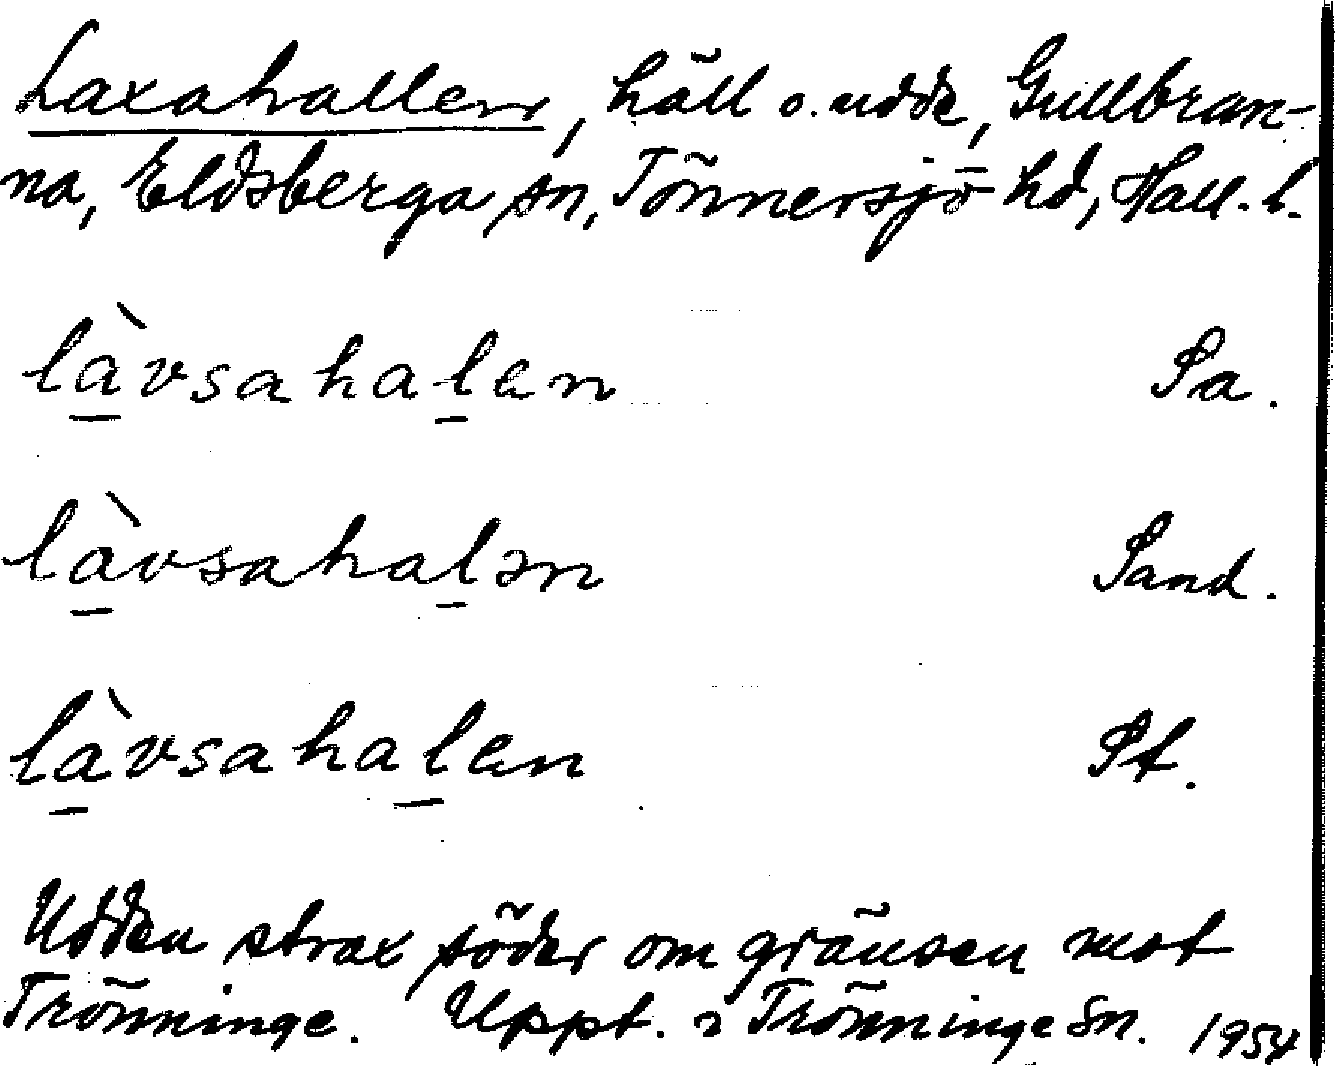 Laxahallen, häll o. udde, Gullbran-
na, Eldsberga sn, Tönnersjö hd, Hall. l.
là̠vsahal̠en Sa.
là̠vsahal̠ən Sand.
là̠vsahal̠en St.
Udden strax söder om gränsen mot
Trönninge. Uppt. i Trönninge Sn. 1954